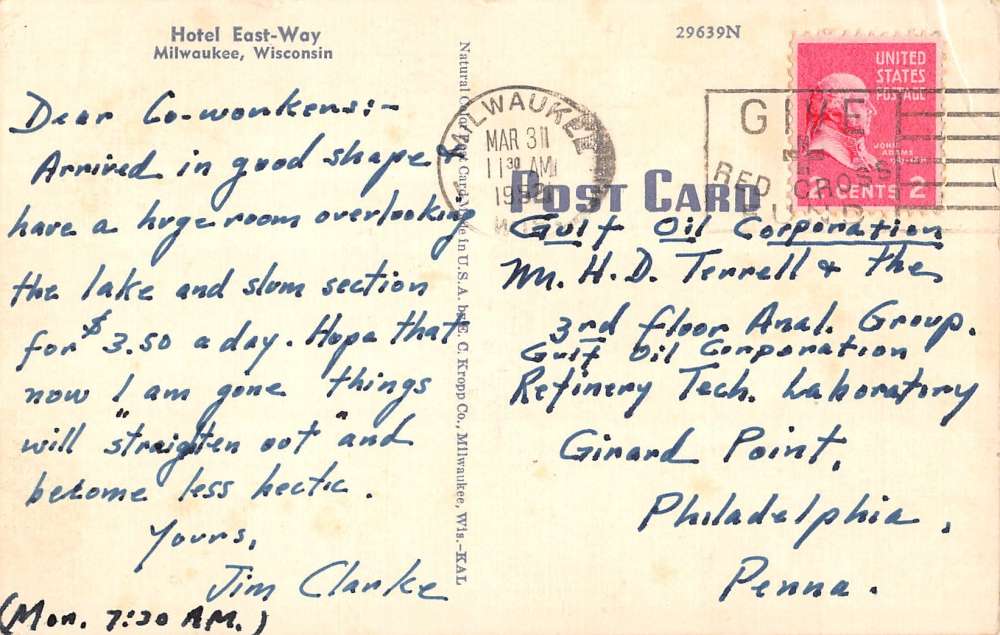 Hotel East-Way
Milwaukee, Wisconsin
29639N
Dear Co-workers:-
Arrived in good shape &
have a huge room overlooking
the lake and slum section
for $3.50 a day. Hope that
now I am gone things
will "straighten out" and
become less hectic.
Yours,
Jim Clarke
(Mon. 7:30 AM.)
Natural Color Post Card Made in U.S.A. by E. C. Kropp Co., Milwaukee, Wis.-KAL
MILWAUKEE
MAR 31
11 30 AM
1952
GIVE
RED CROSS
FUND
UNITED
STATES
POSTAGE
JOHN
ADAMS
2 CENTS 2
POST CARD
Gulf Oil Corporation
Mr. H. D. Terrell & the
3rd floor Anal. Group.
Gulf Oil Corporation
Refinery Tech. Laboratory
Girard Point,
Philadelphia,
Penna.